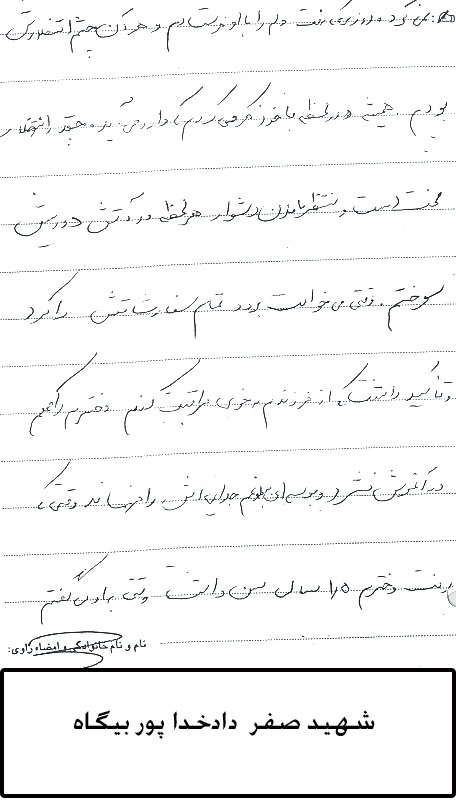 روزی که رفت دلم را با او فرستادم و هر آن چشم انتظارش
بودم. همیشه در لحظه با خود فکر می کردم که دارد می آید. چقدر انتظار
سخت است و منتظر ماندن دشوار هر لحظه در آتش دوریش
سوختم. وقتی می خواست برود تمام سفارشاتش را کرد
و تأکید داشت که از فرزندم به خوبی مراقبت کنم دخترم را هم
در آغوش فشرد و بوسه ای جدایی اش را وقتی که
رفت دخترم ۱/۵ سال سن داشت وقتی به او می گفتم
نام و نام خانوادگی و امضاء راوی:
شهید صفر دادخدا پور بیگاه